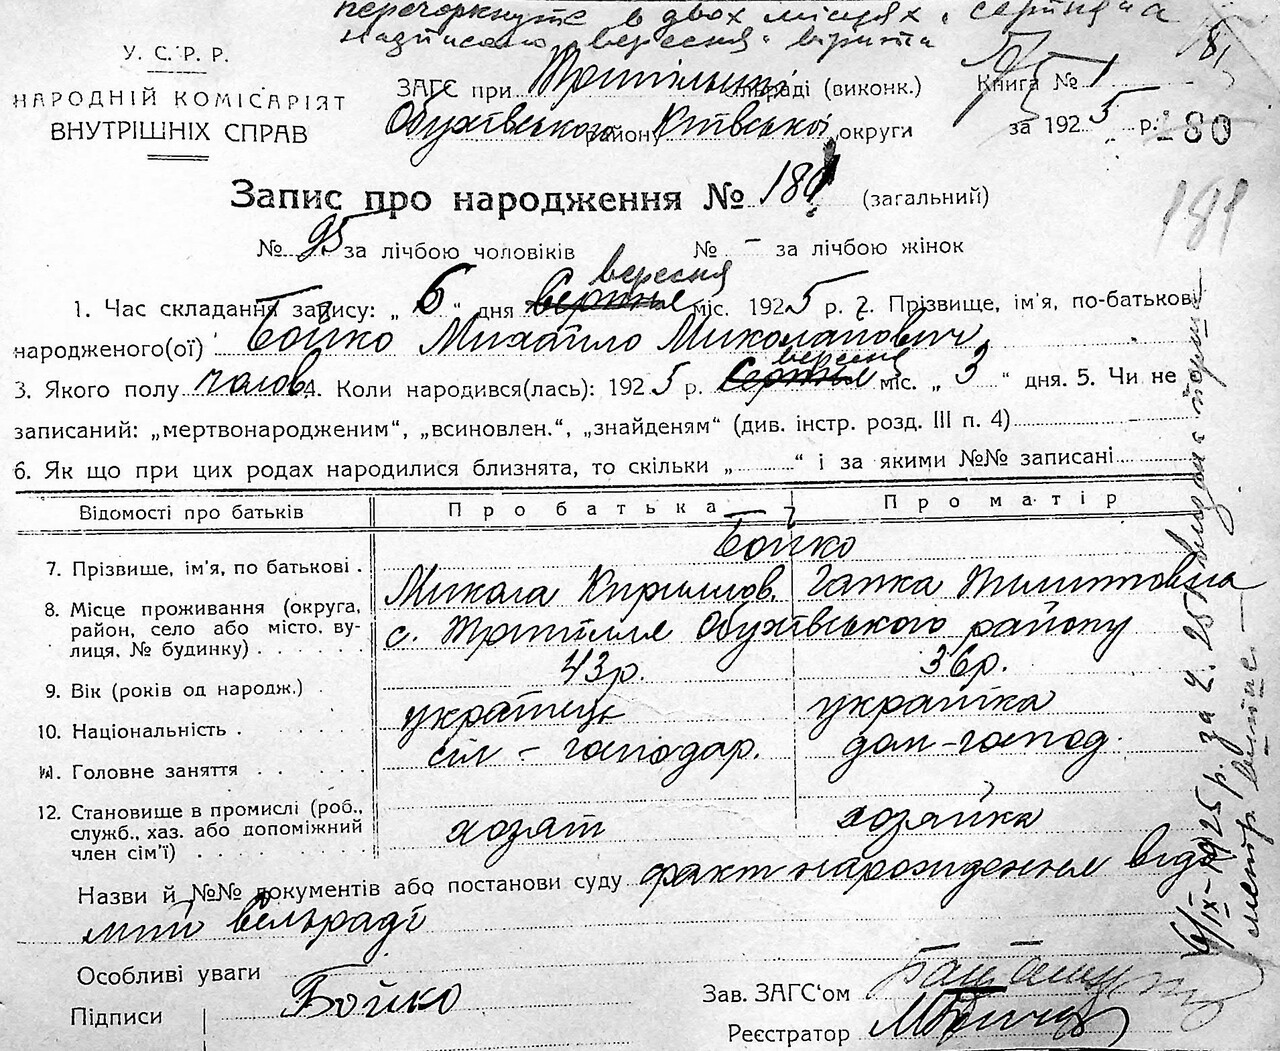 перечеркнуте в двох місцях „серпня“
надписано „вересня“ вірити
У.С.Р.Р.
НАРОДНІЙ КОМІСАРІЯТ
ВНУТРІШНІХ СПРАВ
ЗАГС при Трипільській раді (виконк.)
Книга № 1
81
Обухівського району Київської округи
за 1925 р.
180
Запис про народження № 181 (загальний)
181
№ 95 за лічбою чоловіків № – за лічбою жінок
вересня
1. Час складання запису: „6“ дня серпня міс. 1925 р. 2. Прізвище, ім'я, по-батькові
народженого(ої) Бойко Михайло Миколаович
вересня
3. Якого полу чолов. 4. Коли народився(лась): 1925 р. серпня міс. „3“ дня. 5. Чи не
записаний: „мертвонародженим“, „всиновлен.“, „знайденям“ (див. інстр. розд. III п. 4)
6. Як що при цих родах народилися близнята, то скільки „ “ і за якими №№ записані
Відомості про батьків Про батька Про матір
7. Прізвище, ім'я, по батькові . Бойко
Микола Кирилов. Гапка Пилиповна
8. Місце проживання (округа,
район, село або місто, ву-
лиця, № будинку) . . . . . .
с. Трипілля Обухівського району
9. Вік (років од народж.) . 43 р. 36 р.
10. Національність . . . . . українець українка
11. Головне заняття . . . . сіл-господар. дом-господ.
12. Становище в промислі (роб.,
служб., хаз. або допоміжний
член сім'ї) . . . . . . . .
хозяїн хозяйка
Назви й №№ документів або постанови суду факт народження відо
мий сільраді
Особливі уваги
Підписи Бойко
Зав. ЗАГС'ом
Реєстратор
6/IX-1925 р. за ч. 25